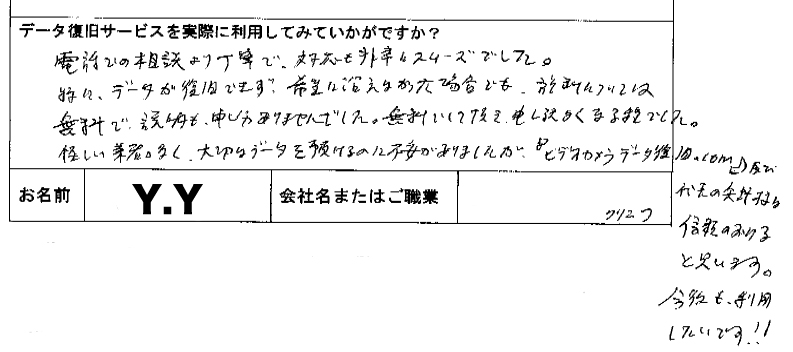 データ復旧サービスを実際に利用してみていかがですか？
電話での相談より丁寧で、対応も非常にスムーズでした。
特に、データが復旧できず、希望に沿えなかった場合でも、診断については
無料で、説明も、申し分ありませんでした。無料にして頂き、申し訳なくなる程でした。
怪しい業者も多く、大切なデータを預けるのに不安がありましたが、ビデオカメラデータ復旧.com
及び
代表の
信頼のおける
と思います。
今後も、利用
したいです!!
お名前 Y.Y 会社名またはご職業